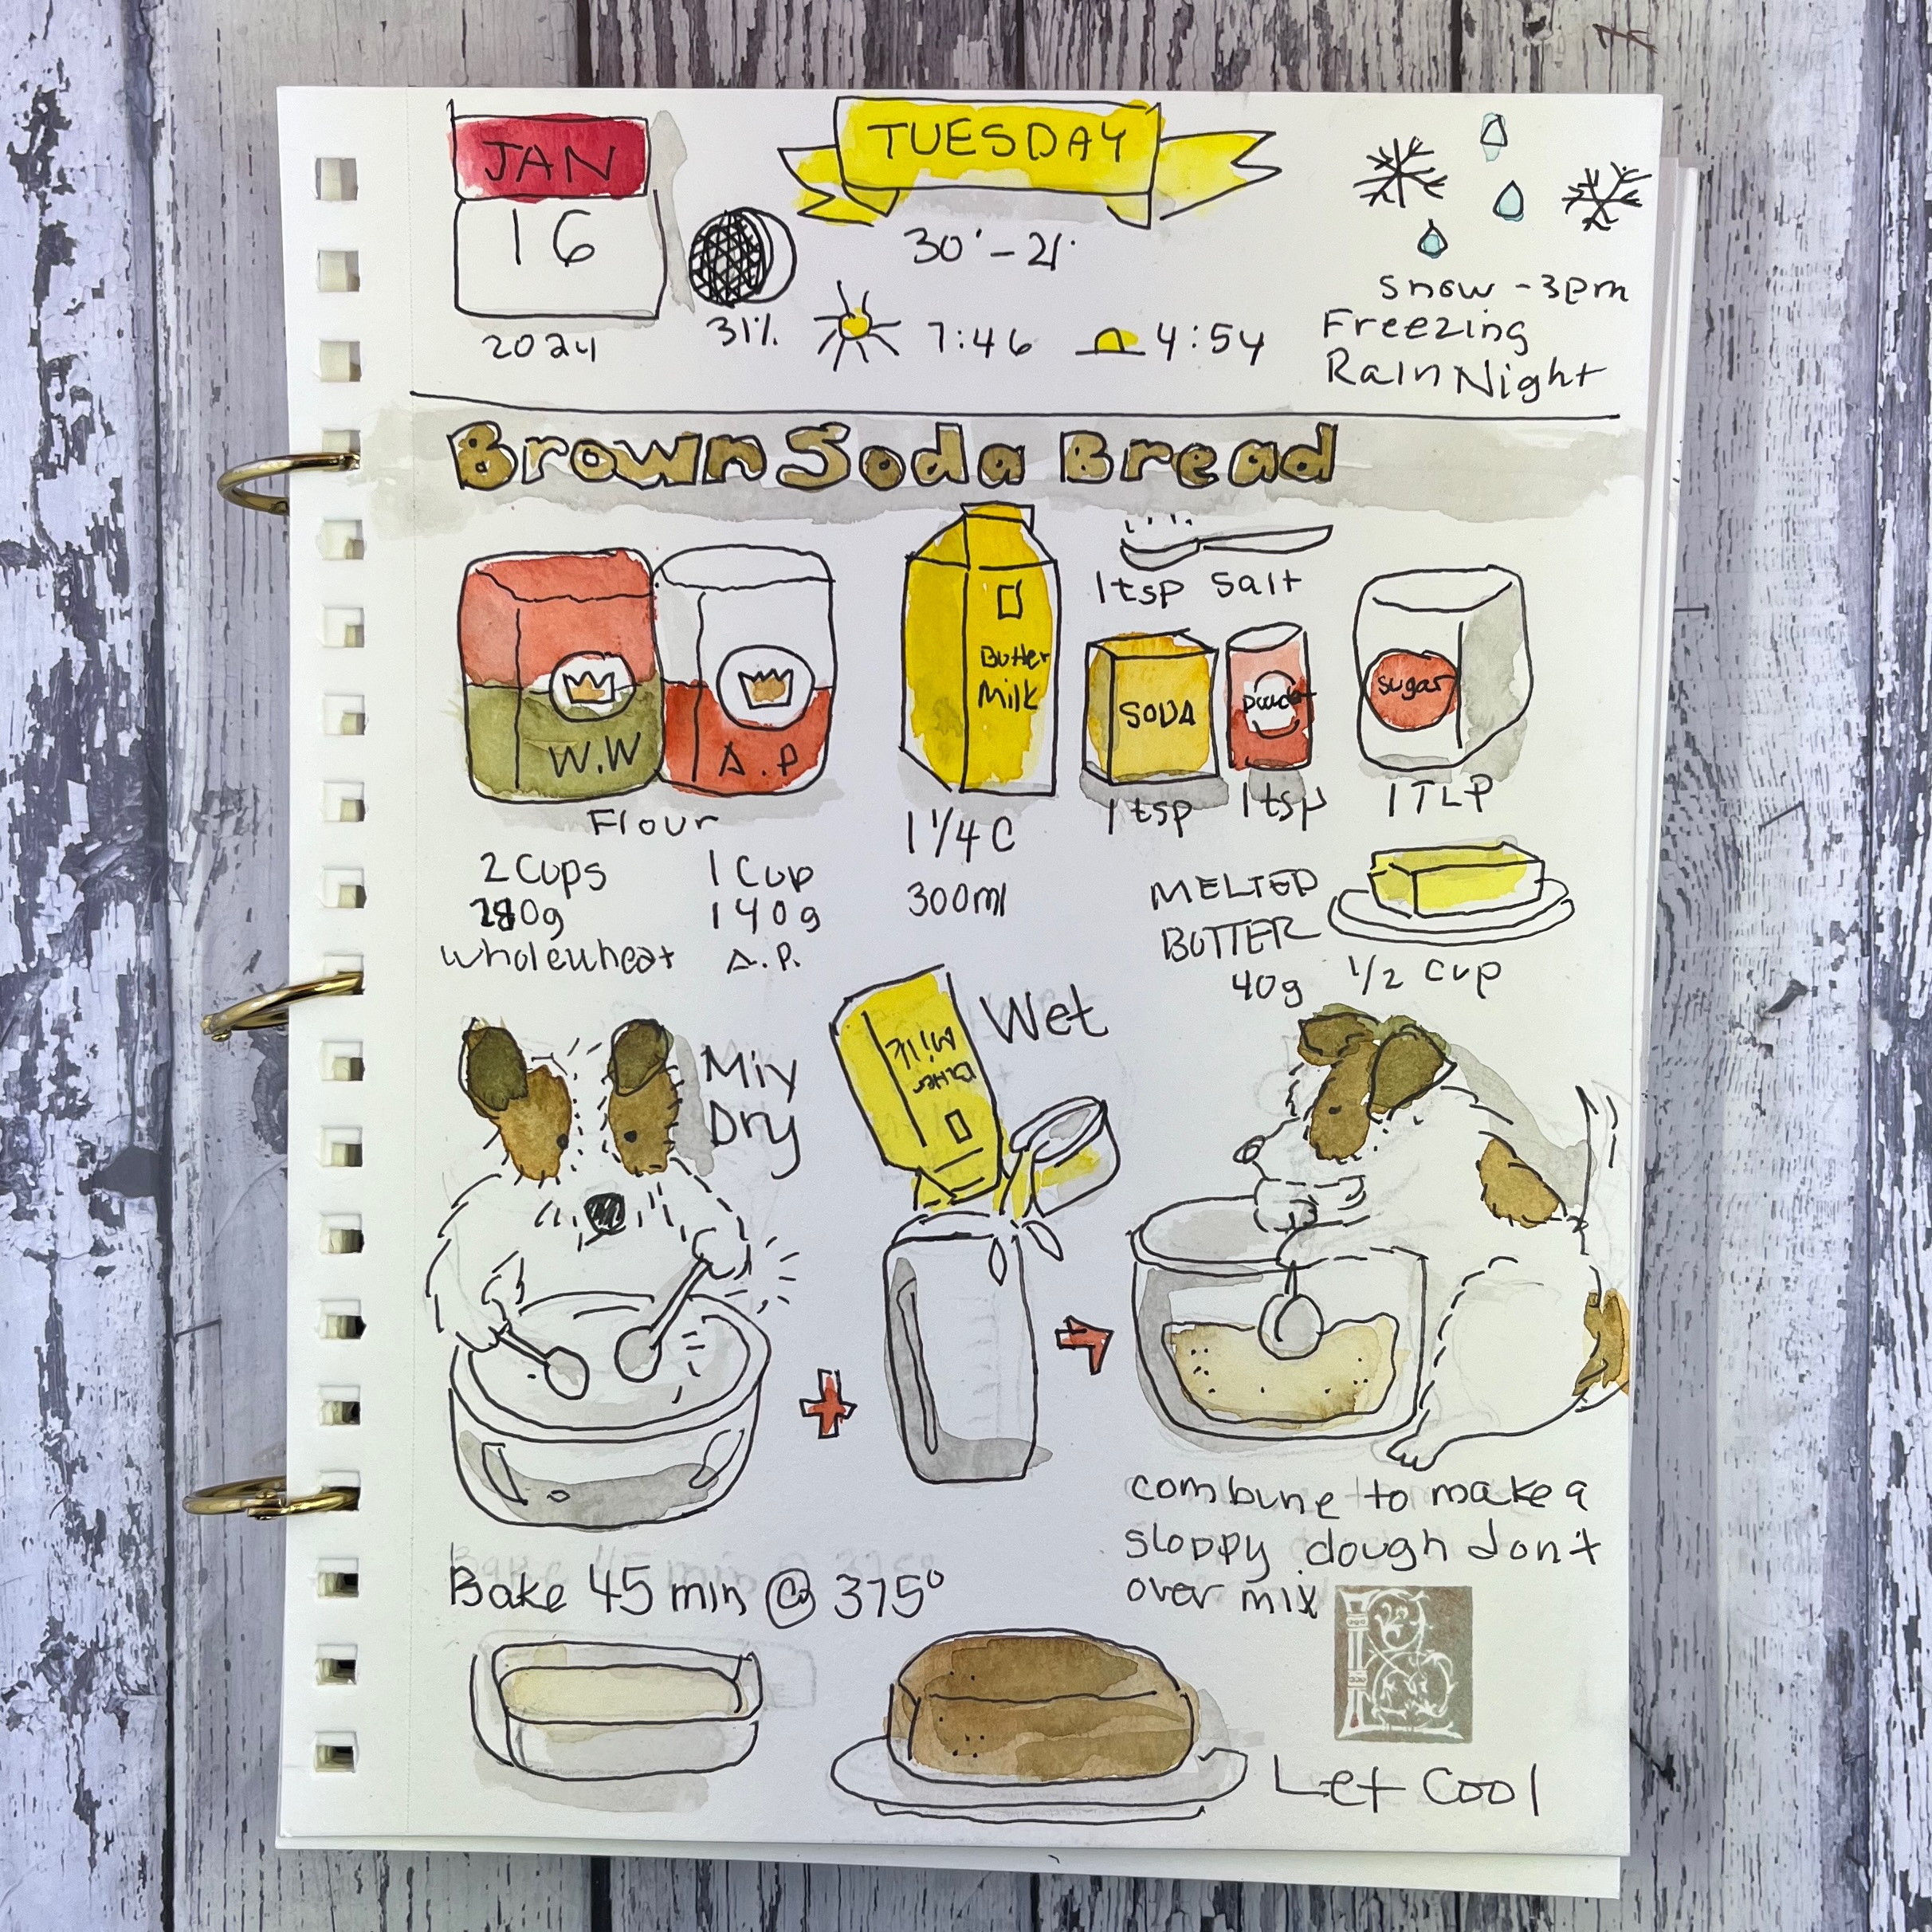 JAN
16
2024
31%
TUESDAY
30° - 21°
7:46
4:54
Snow - 3pm
Freezing
Rain Night
Brown Soda Bread
W.W
A.P
Flour
2 Cups
280g
wholewheat
1 Cup
140g
A.P.
Butter
Milk
1 1/4 C
300ml
1 tsp Salt
SODA
1 tsp
1 tsp
sugar
1 TLP
MELTED
BUTTER
40g
1/2 cup
Mix
Dry
Wet
Butter
Milk
combine to make a
sloppy dough don't
over mix
Bake 45 min @ 375°
Let Cool